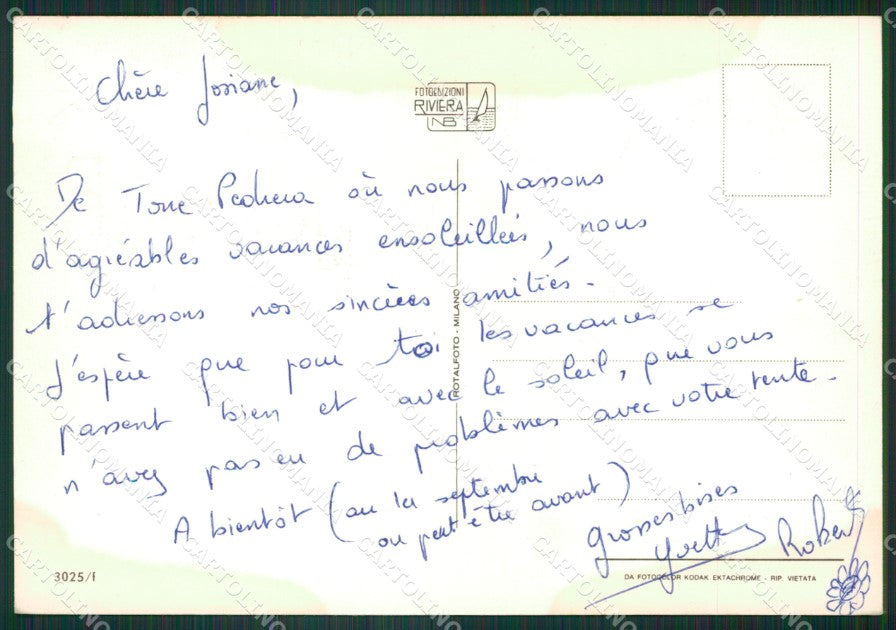 Chère Josiane,
FOTOEDIZIONI
RIVIERA
NB
De Torre Pedrera où nous passons
d'agréables vacances ensoleillées, nous
t'adressons nos sincères amitiés.
J'espère que pour toi les vacances se
passent bien et avec le soleil, que vous
n'avez pas eu de problèmes avec votre tente.
A bientôt (au 12 septembre
ou peut être avant)
Grosses bises
Yvette Robert
ROTALFOTO - MILANO
3025/f
DA FOTOCOLOR KODAK EKTACHROME - RIP. VIETATA
CARTOLINOMANIA